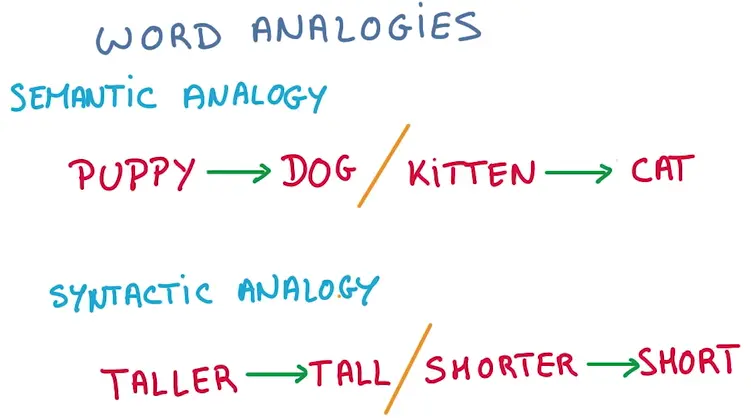 WORD ANALOGIES
SEMANTIC ANALOGY
PUPPY → DOG / KiTTEN → CAT
SYNTACTIC ANALOGY
TALLER → TALL / SHORTER → SHORT